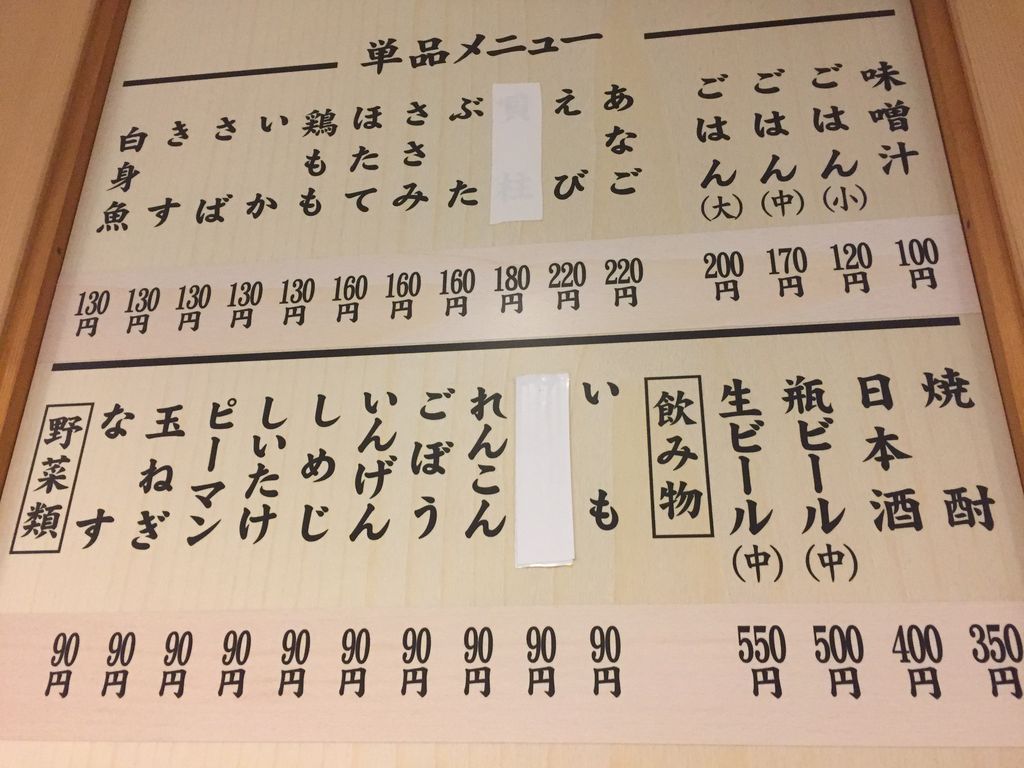 単品メニュー
味噌汁 100円
ごはん(小) 120円
ごはん(中) 170円
ごはん(大) 200円
あなご 220円
えび 220円
貝柱 180円
ぶた 160円
ささみ 160円
ほたて 160円
鶏もも 130円
いか 130円
さば 130円
きす 130円
白身魚 130円
焼酎 350円
日本酒 400円
瓶ビール(中) 500円
生ビール(中) 550円
飲み物
いも 90円
90円
れんこん 90円
ごぼう 90円
いんげん 90円
しめじ 90円
しいたけ 90円
ピーマン 90円
玉ねぎ 90円
なす 90円
野菜類